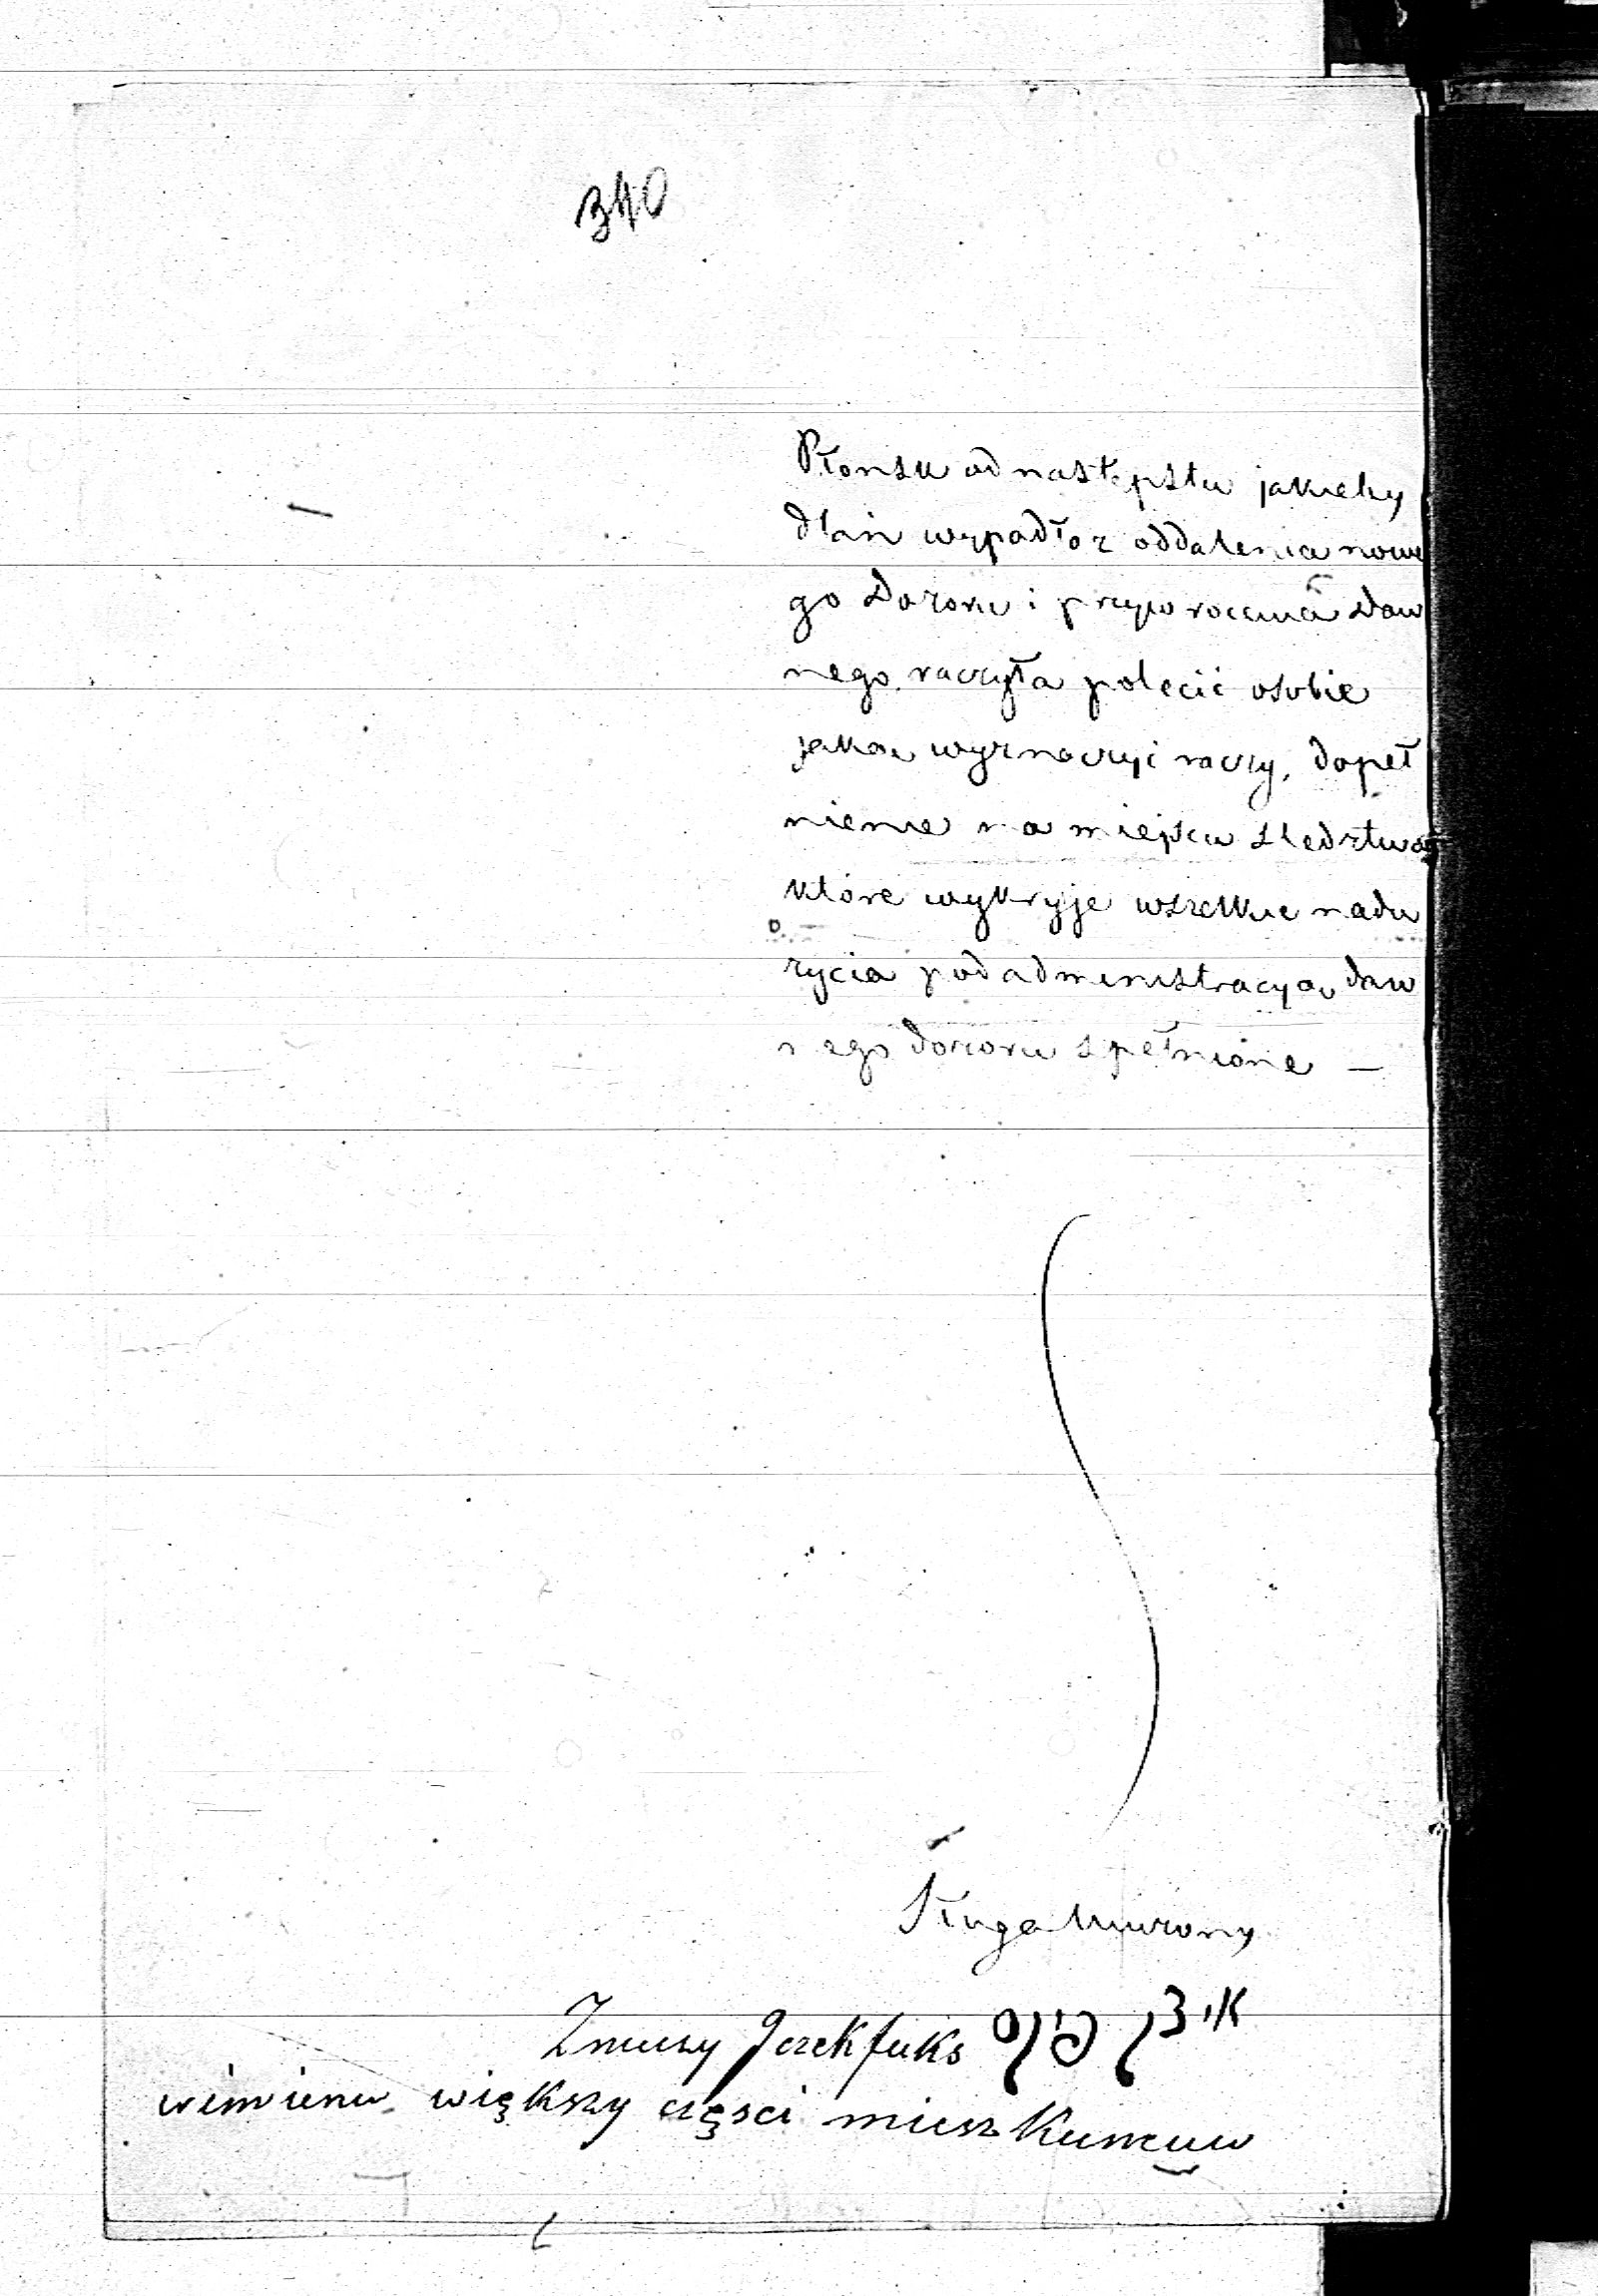 340
Płonsk od następstw jakieby
dlań wypadło z oddalenia nowe
go Dozoru i przywrocenia daw
nego, raczyła polecić osobie
jaką wyznaczyć raczy, dopeł
nienie na miejscu sledztwa
które wykryje wszelkie nadu
życia pod administracyą daw
nego dozoru spełnione —
Sługa Uniżony
Jcek fuks איצק פוקס
wimieniu większy częsci mieszkuncuw